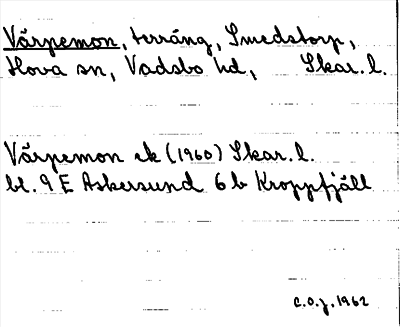 Värpemon, terräng, Smedstorp,
Hova sn, Vadsbo hd, Skar. l.
Värpemon ek (1960) Skar. l.
bl. 9 E Askersund 6 b Kroppfjäll
C.O.J, 1962